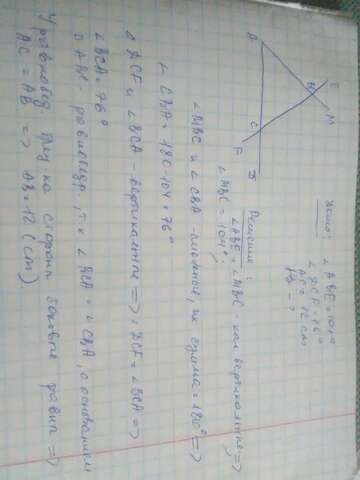 Дано: ∠ABE = 104°
∠DCF = 76°
AC = 12 cm
AB - ?
A
E
B
M
C
F
D
Решение:
∠ABE = ∠MBC - как вертикальные =>
∠MBC = 104°;
∠MBC и ∠CBA - смежные, их сумма = 180° =>
∠CBA = 180-104 = 76°
∠DCF и ∠BCA - вертикальные => ∠DCF = ∠BCA =>
∠BCA = 76°
△ABC - равнобедр. т.к ∠BCA = ∠CBA, а основанием
У равнобед. треу-ка стороны боковые равны =>
AC = AB => AB = 12 (cm).